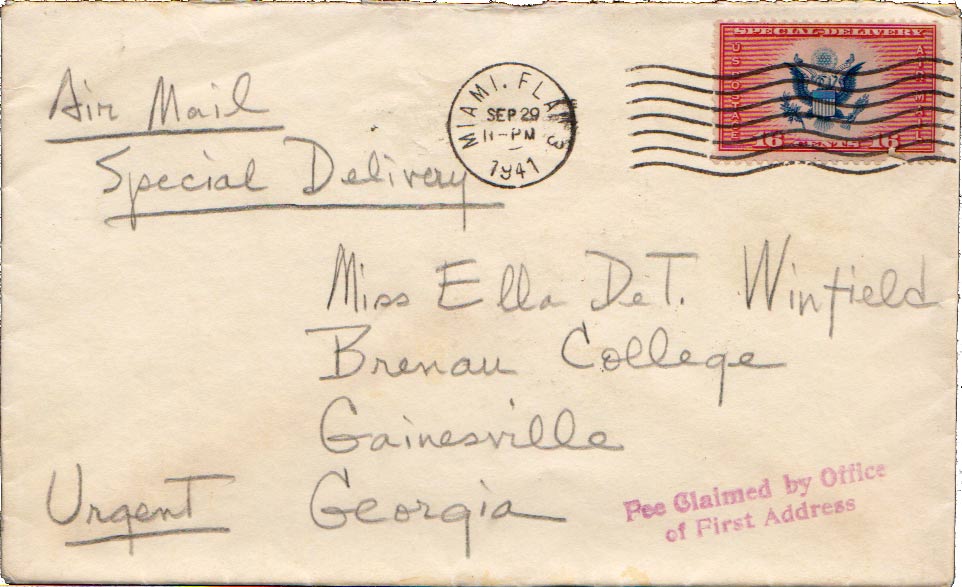 Air Mail
Special Delivery
MIAMI, FLA. 3
SEP 29
11-PM
1941
SPECIAL DELIVERY
U S POSTAGE
AIR MAIL
16 CENTS 16
Miss Ella DeT. Winfield
Brenau College
Gainesville
Urgent Georgia
Fee Claimed by Office
of First Address